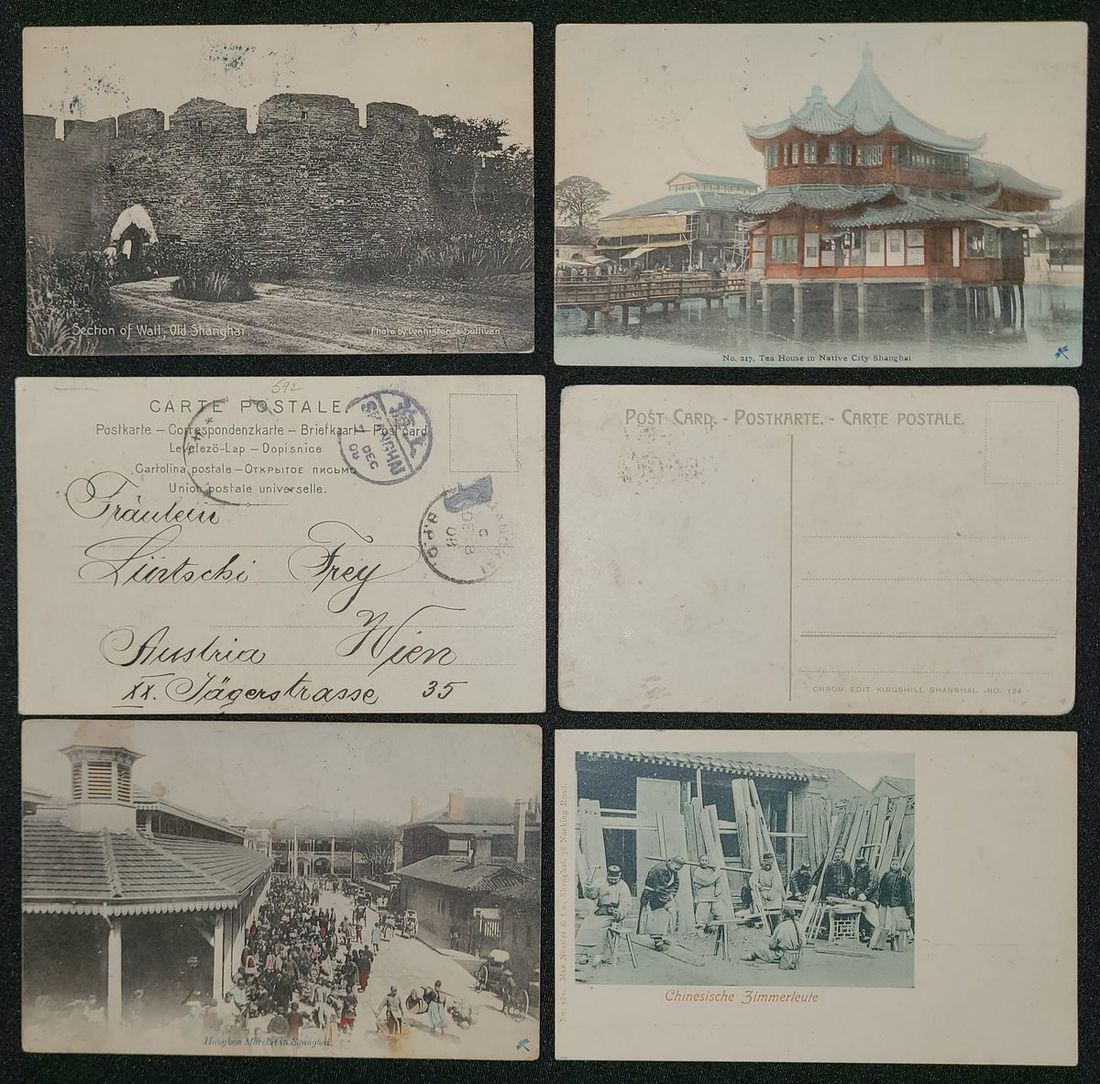 Section of Wall, Old Shanghai.
Photo by Denniston & Sullivan
No. 217, Tea House in Native City Shanghai
592
CARTE POSTALE
Postkarte — Correspondenzkarte — Briefkaart — Post card
Levelező-Lap — Dopisnice
Cartolina postale — Открытое письмо
Union postale universelle.
SHANGHAI
1 DEC 08
SHANGHAI
C
DE 8
08
Fräulein
Frey
Austria Wien
XX. Jägerstrasse 35
POST CARD. - POSTKARTE. - CARTE POSTALE.
CHROM. EDIT KINGSHILL, SHANGHAI. NO. 124
Hongkew Market in Shanghai.
No. 181. Max Nössler & Co. Shanghai, 38 Nanking Road.
Chinesische Zimmerleute